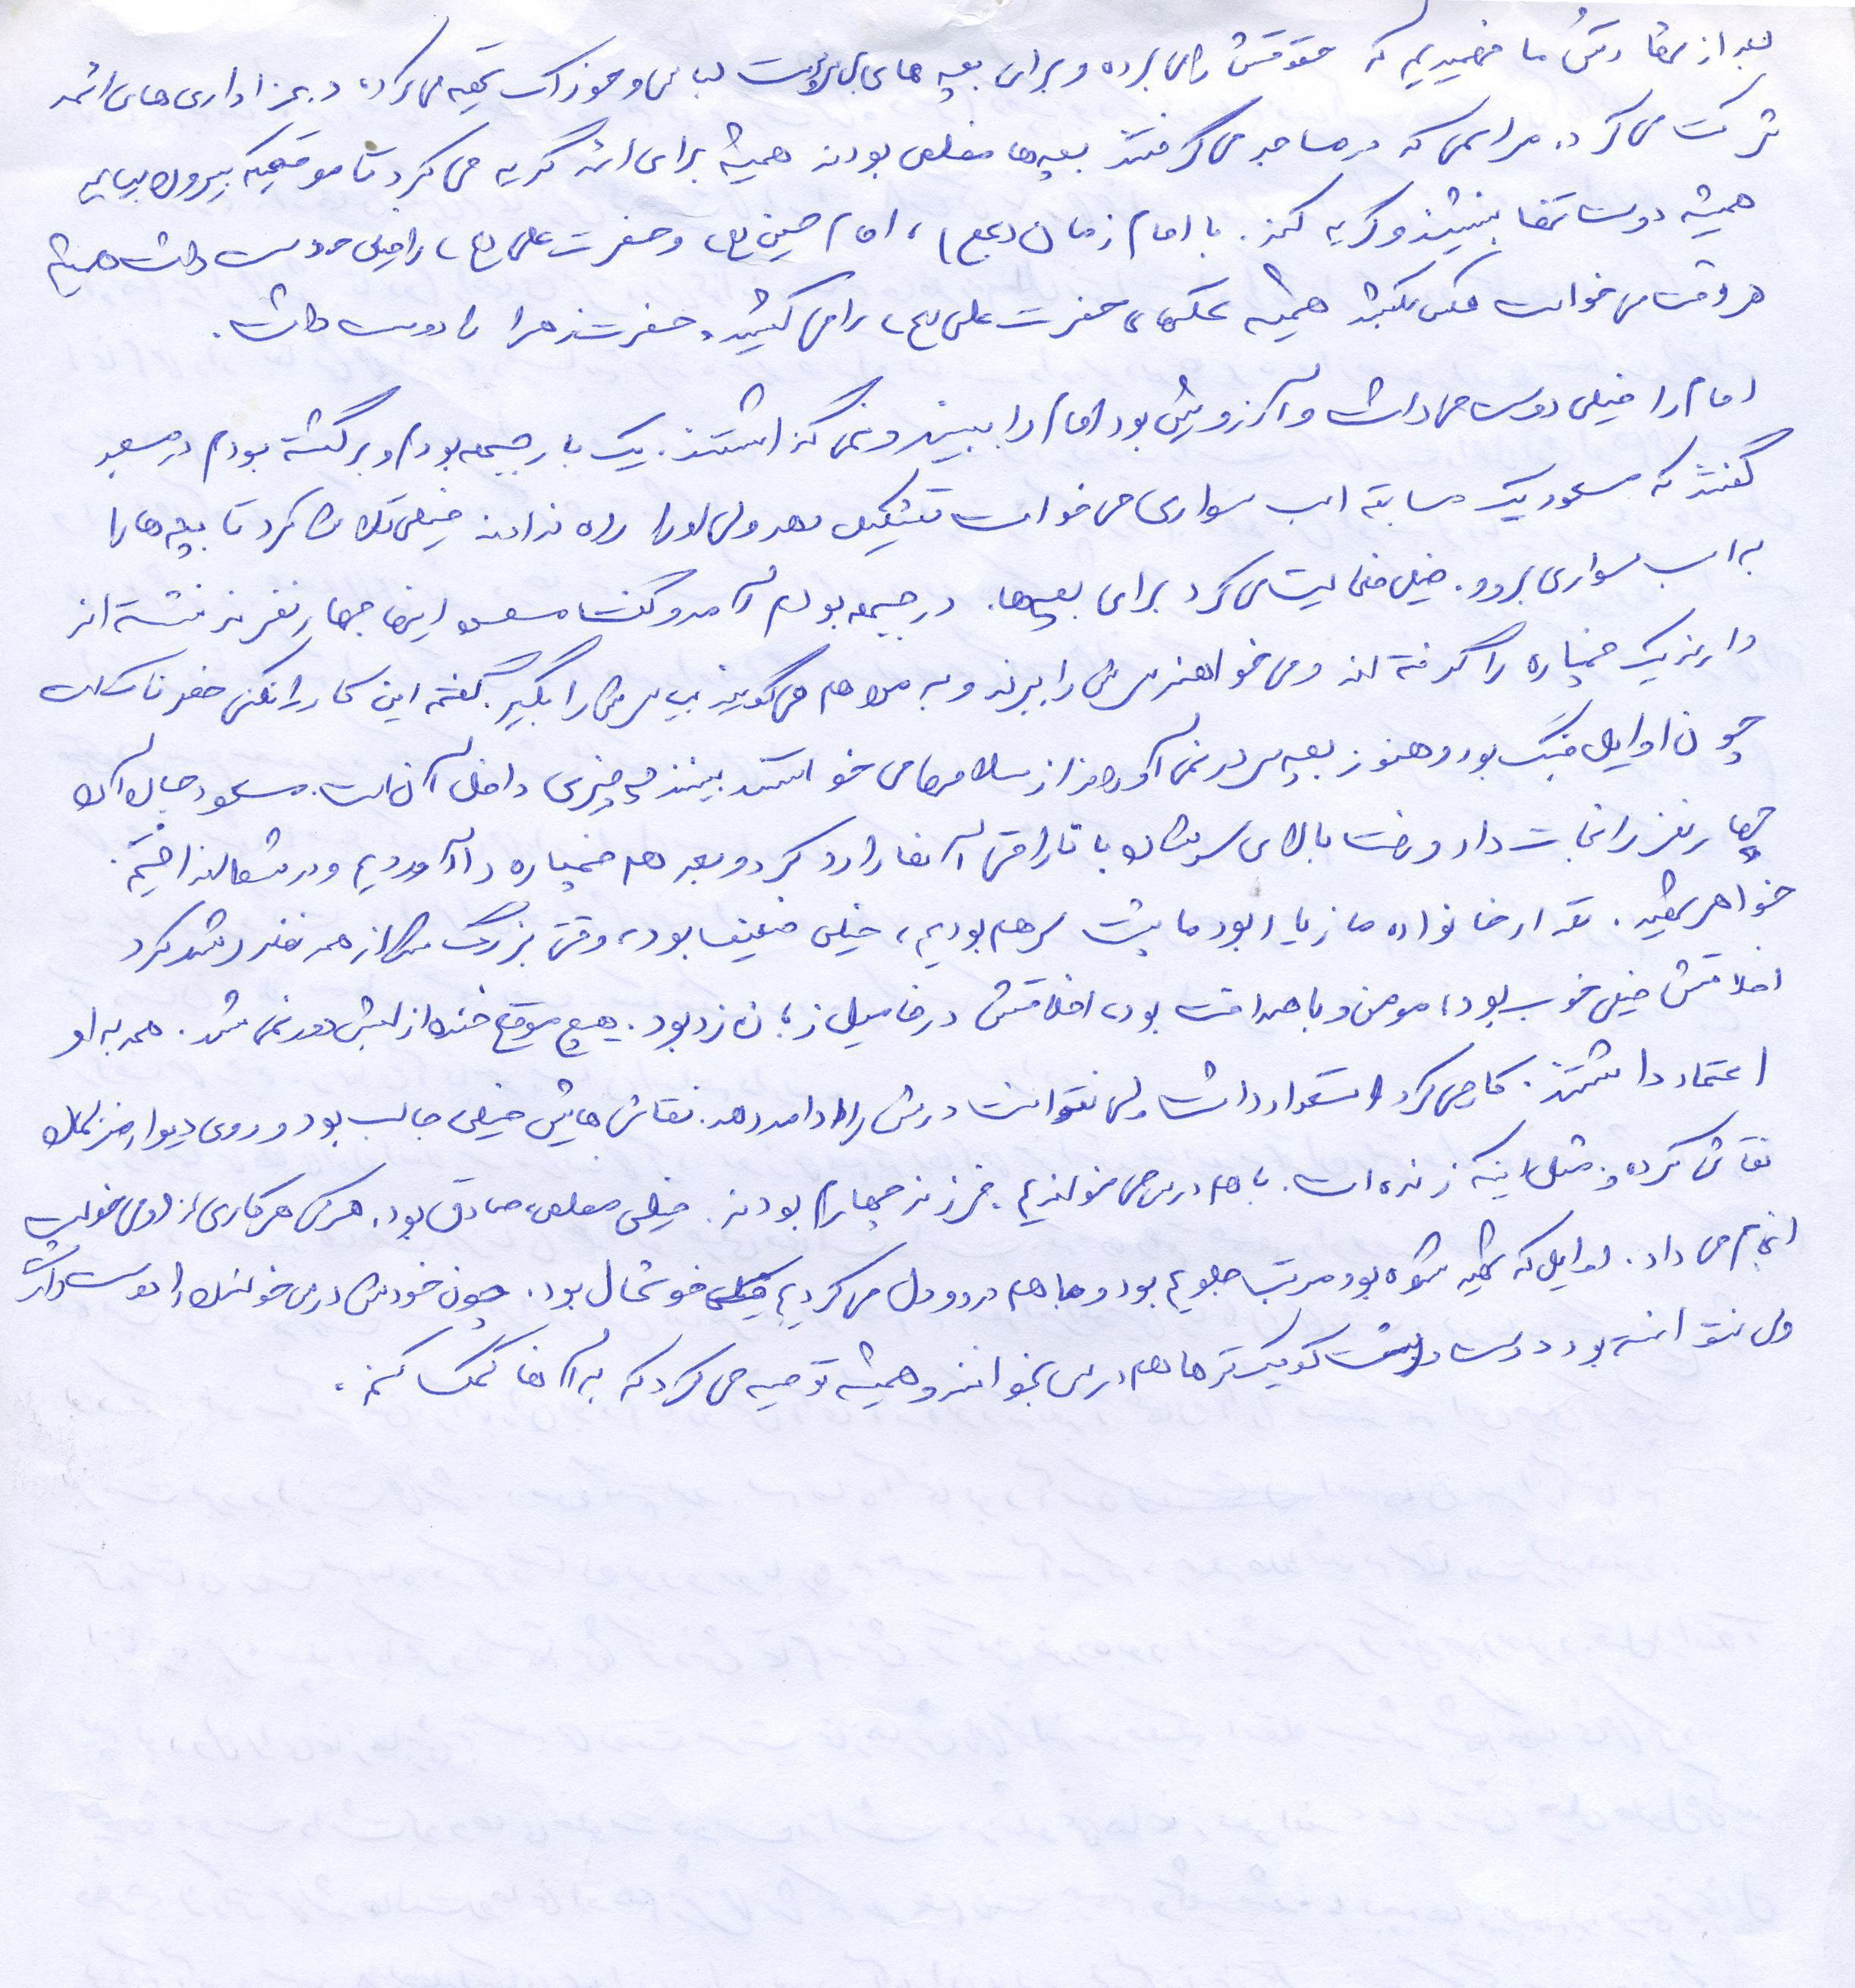 بعد از شهادتش ما فهمیدیم که حقوقش را می برده و برای بچه های بی سرپرست لباس و خوراک تهیه می کرده، در عزاداری های ائمه
شرکت می کرد. مراسمی که در مساجد می گرفتند بچه ها مخلص بودند همیشه برای ائمه گریه می کرد تا موقعیکه بیرون بیاییم
همیشه دوست تنها بنشیند و گریه کند. با امام زمان (عج)، امام حسین (ع) و حضرت علی (ع) را خیلی دوست داشت همیشه
هر وقت می خواست عکس بکشد همیشه عکسهای حضرت علی (ع) را می کشید. حضرت زهرا را دوست داشت.
امام را خیلی دوست می داشت و آرزویش بود امام را ببیند و نمی گذاشتند. یک بار جبهه بودم و برگشته بودم در مسجد
گفتند که مسعود یک مسابقه اسب سواری می خواست تشکیل دهد ولی او را راه ندادند خیلی تلاش کرد تا بچه ها را
به اسب سواری ببرد. خیلی فعالیت می کرد برای بچه ها. در جبهه بودم آمد و گفت مسعود اینها چهار نفرند نشسته اند
دارند یک خمپاره را گرفته اند و می خواهند سرش را ببرند و به من هم می گویند بیا سرش را بگیر. گفتم این کار را نکنی خطرناک است
چون اوایل جنگ بود و هنوز بچه سر در نمی آوردند از سلاح ها می خواستند ببینند چه چیزی داخل آن است. مسعود جان آن
چهار نفر را نجات داد و رفت بالای سرشان و با ناراحتی آنها را رد کرد و بعد هم خمپاره را آوردیم و در شعله انداختیم.
خواهر شهید. تعداد خانواده ما زیاد بود ما پشت سر هم بودیم، خیلی ضعیف بود، وقتی بزرگ شد از همه نظر رشد کرد
اخلاقش خیلی خوب بود، مومن و با صداقت بود، اخلاقش در فامیل زبان زد بود. هیچ موقع خنده از لبش دور نمی شد. همه به او
اعتماد داشتند. کار می کرد استعداد داشت ولی نتوانست درسش را ادامه دهد. نقاشی هایش خیلی جالب بود و روی دیوار منزلمان
نقاشی کرده و مثل اینکه زنده است. با هم درس می خواندیم. فرزند چهارم بودند. خیلی مخلص، صادق بود. هرکس هر کاری از او می خواست
انجام می داد. اوایل که شهید شده بود مرتب جلویم بود و با هم درد و دل می کردیم خیلی خوشحال بود. چون خودش درس خواندن را دوست داشت
ولی نتوانسته بود دوست داشت کوچیکترها هم درس بخوانند و همیشه توصیه می کرد که به آنها کمک کنم.